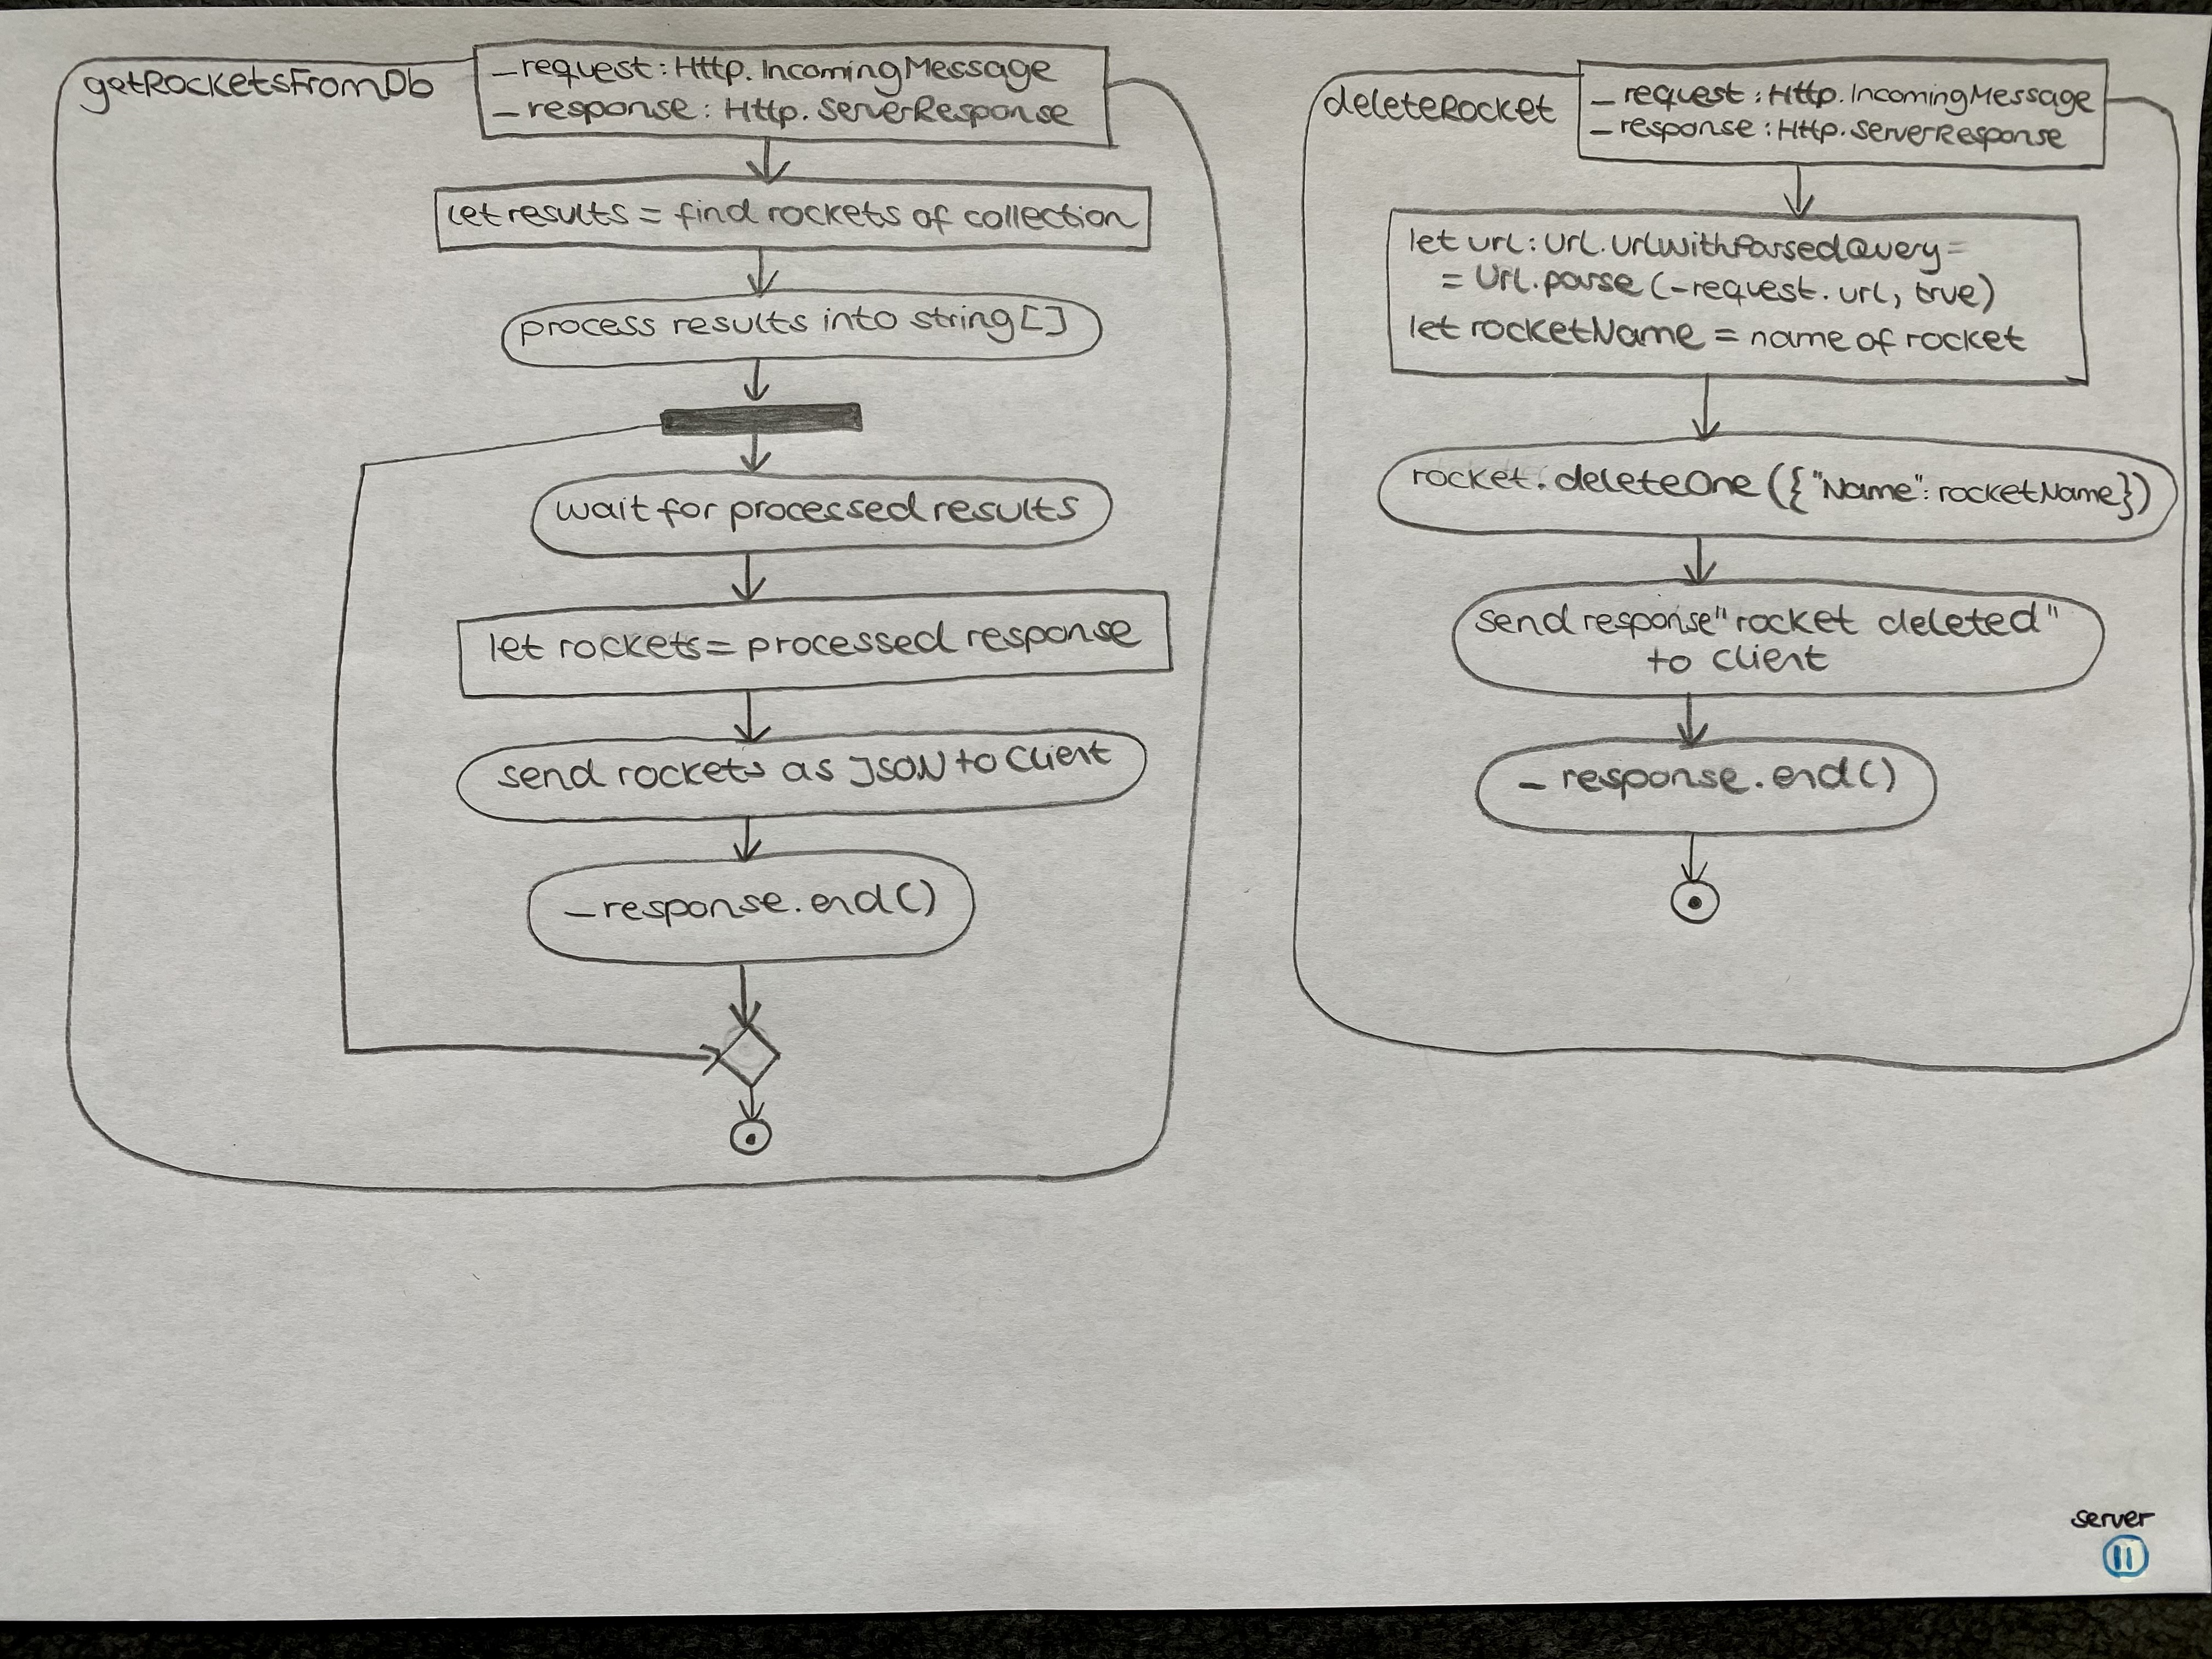 getRocketsFromDb
_request: Http.IncomingMessage
_response: Http.ServerResponse
let results = find rockets of collection
process results into string[]
wait for processed results
let rockets = processed response
send rockets as JSON to Client
_response.end()
deleteRocket
_request: Http.IncomingMessage
_response: Http.ServerResponse
let url: Url.UrlWithParsedQuery =
= Url.parse(_request.url, true)
let rocketName = name of rocket
rocket.deleteOne({"Name": rocketName})
send response "rocket deleted"
to client
_response.end()
server
11